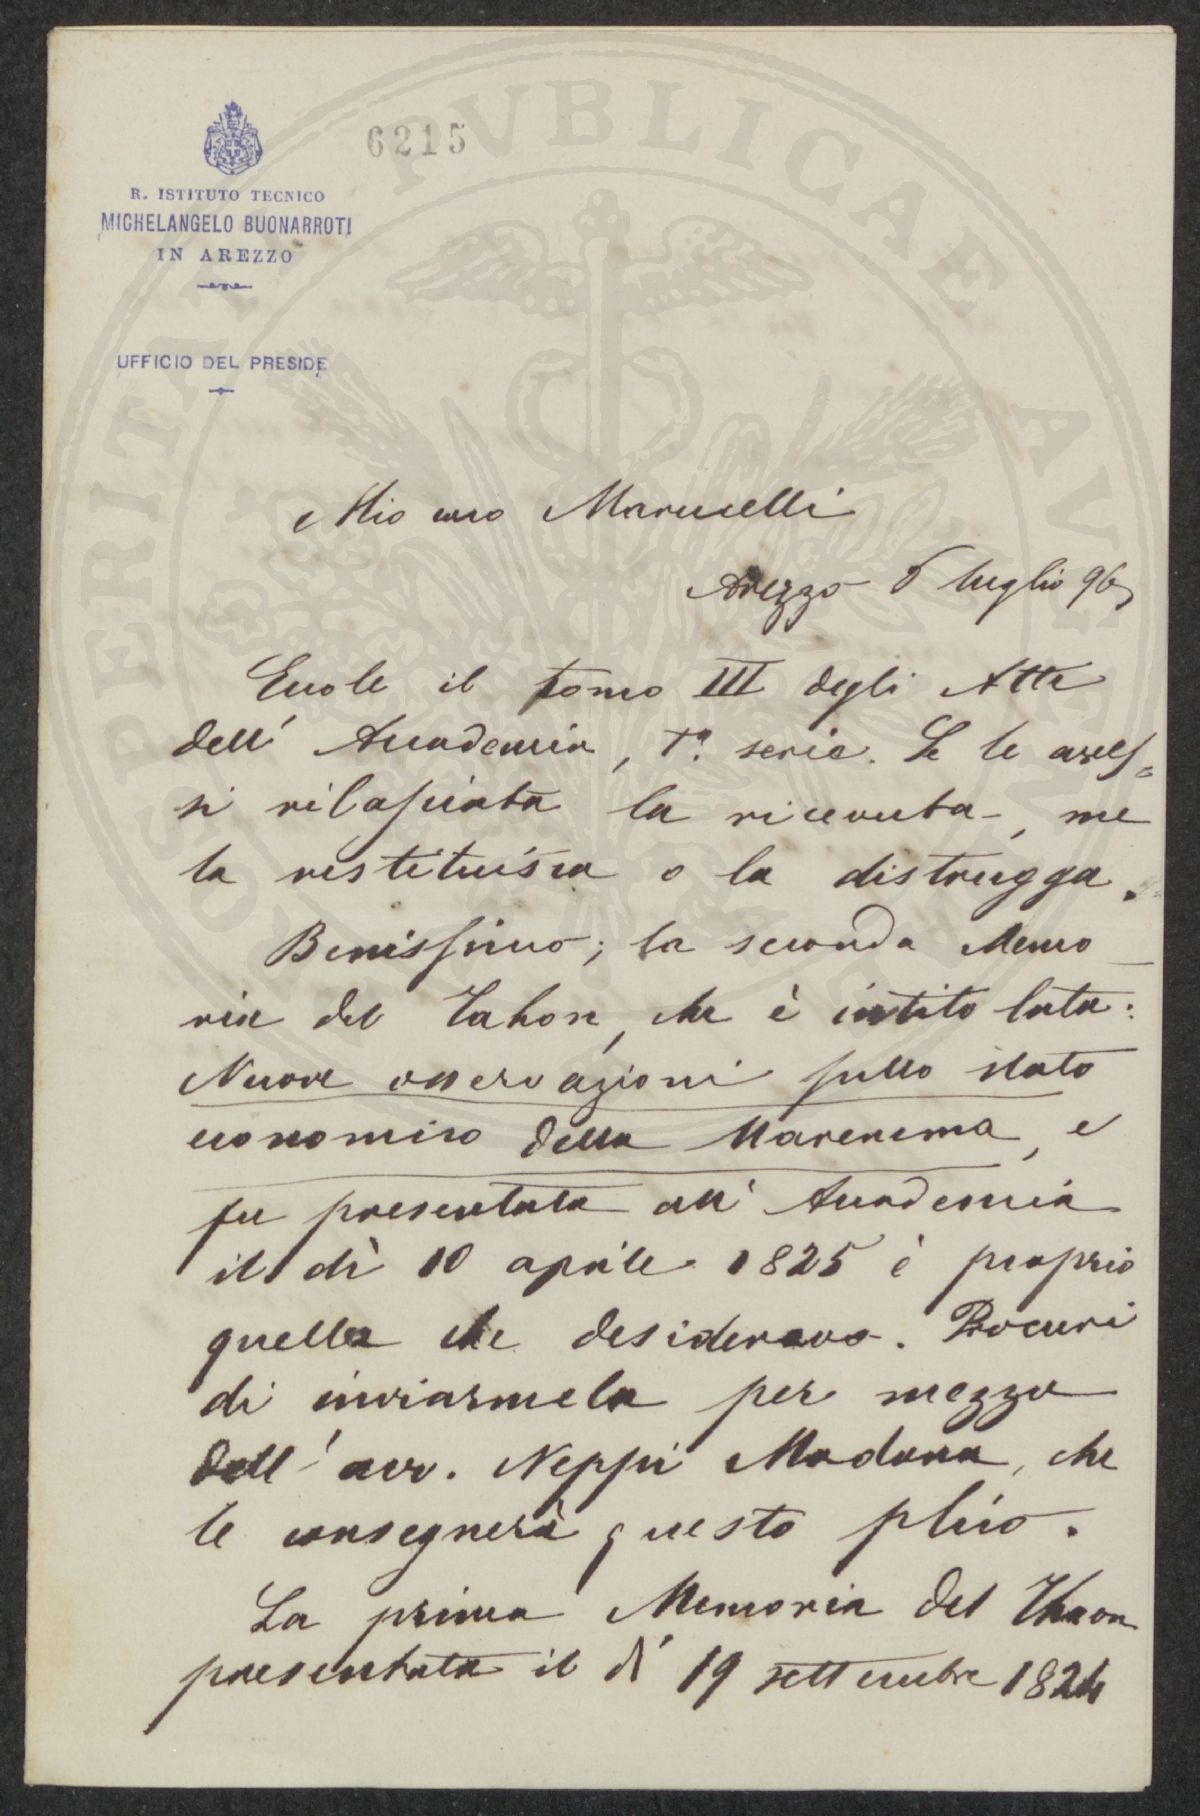 6215
R. ISTITUTO TECNICO
MICHELANGELO BUONARROTI
IN AREZZO
UFFICIO DEL PRESIDE
PROSPERITATI PVBLICAE AVGENDAE
Mio caro Marucelli
Arezzo 6 luglio 96
Eccole il tomo III degli Atti
dell' Accademia, 1ª. serie. Se le aves=
si rilasciata la ricevuta, me
la restituisca o la distrugga.
Benissimo; la seconda Memo
ria del Tahon, che è intitolata:
Nuove osservazioni sullo stato
economico della Maremma, e
fu presentata all' Accademia
il dì 10 aprile 1825 è proprio
quella che desideravo. Procuri
di inviarmela per mezzo
dell' avv. Neppi Modona, che
le consegnerà questo plico.
La prima Memoria del Thaon
presentata il dì 19 settembre 1824